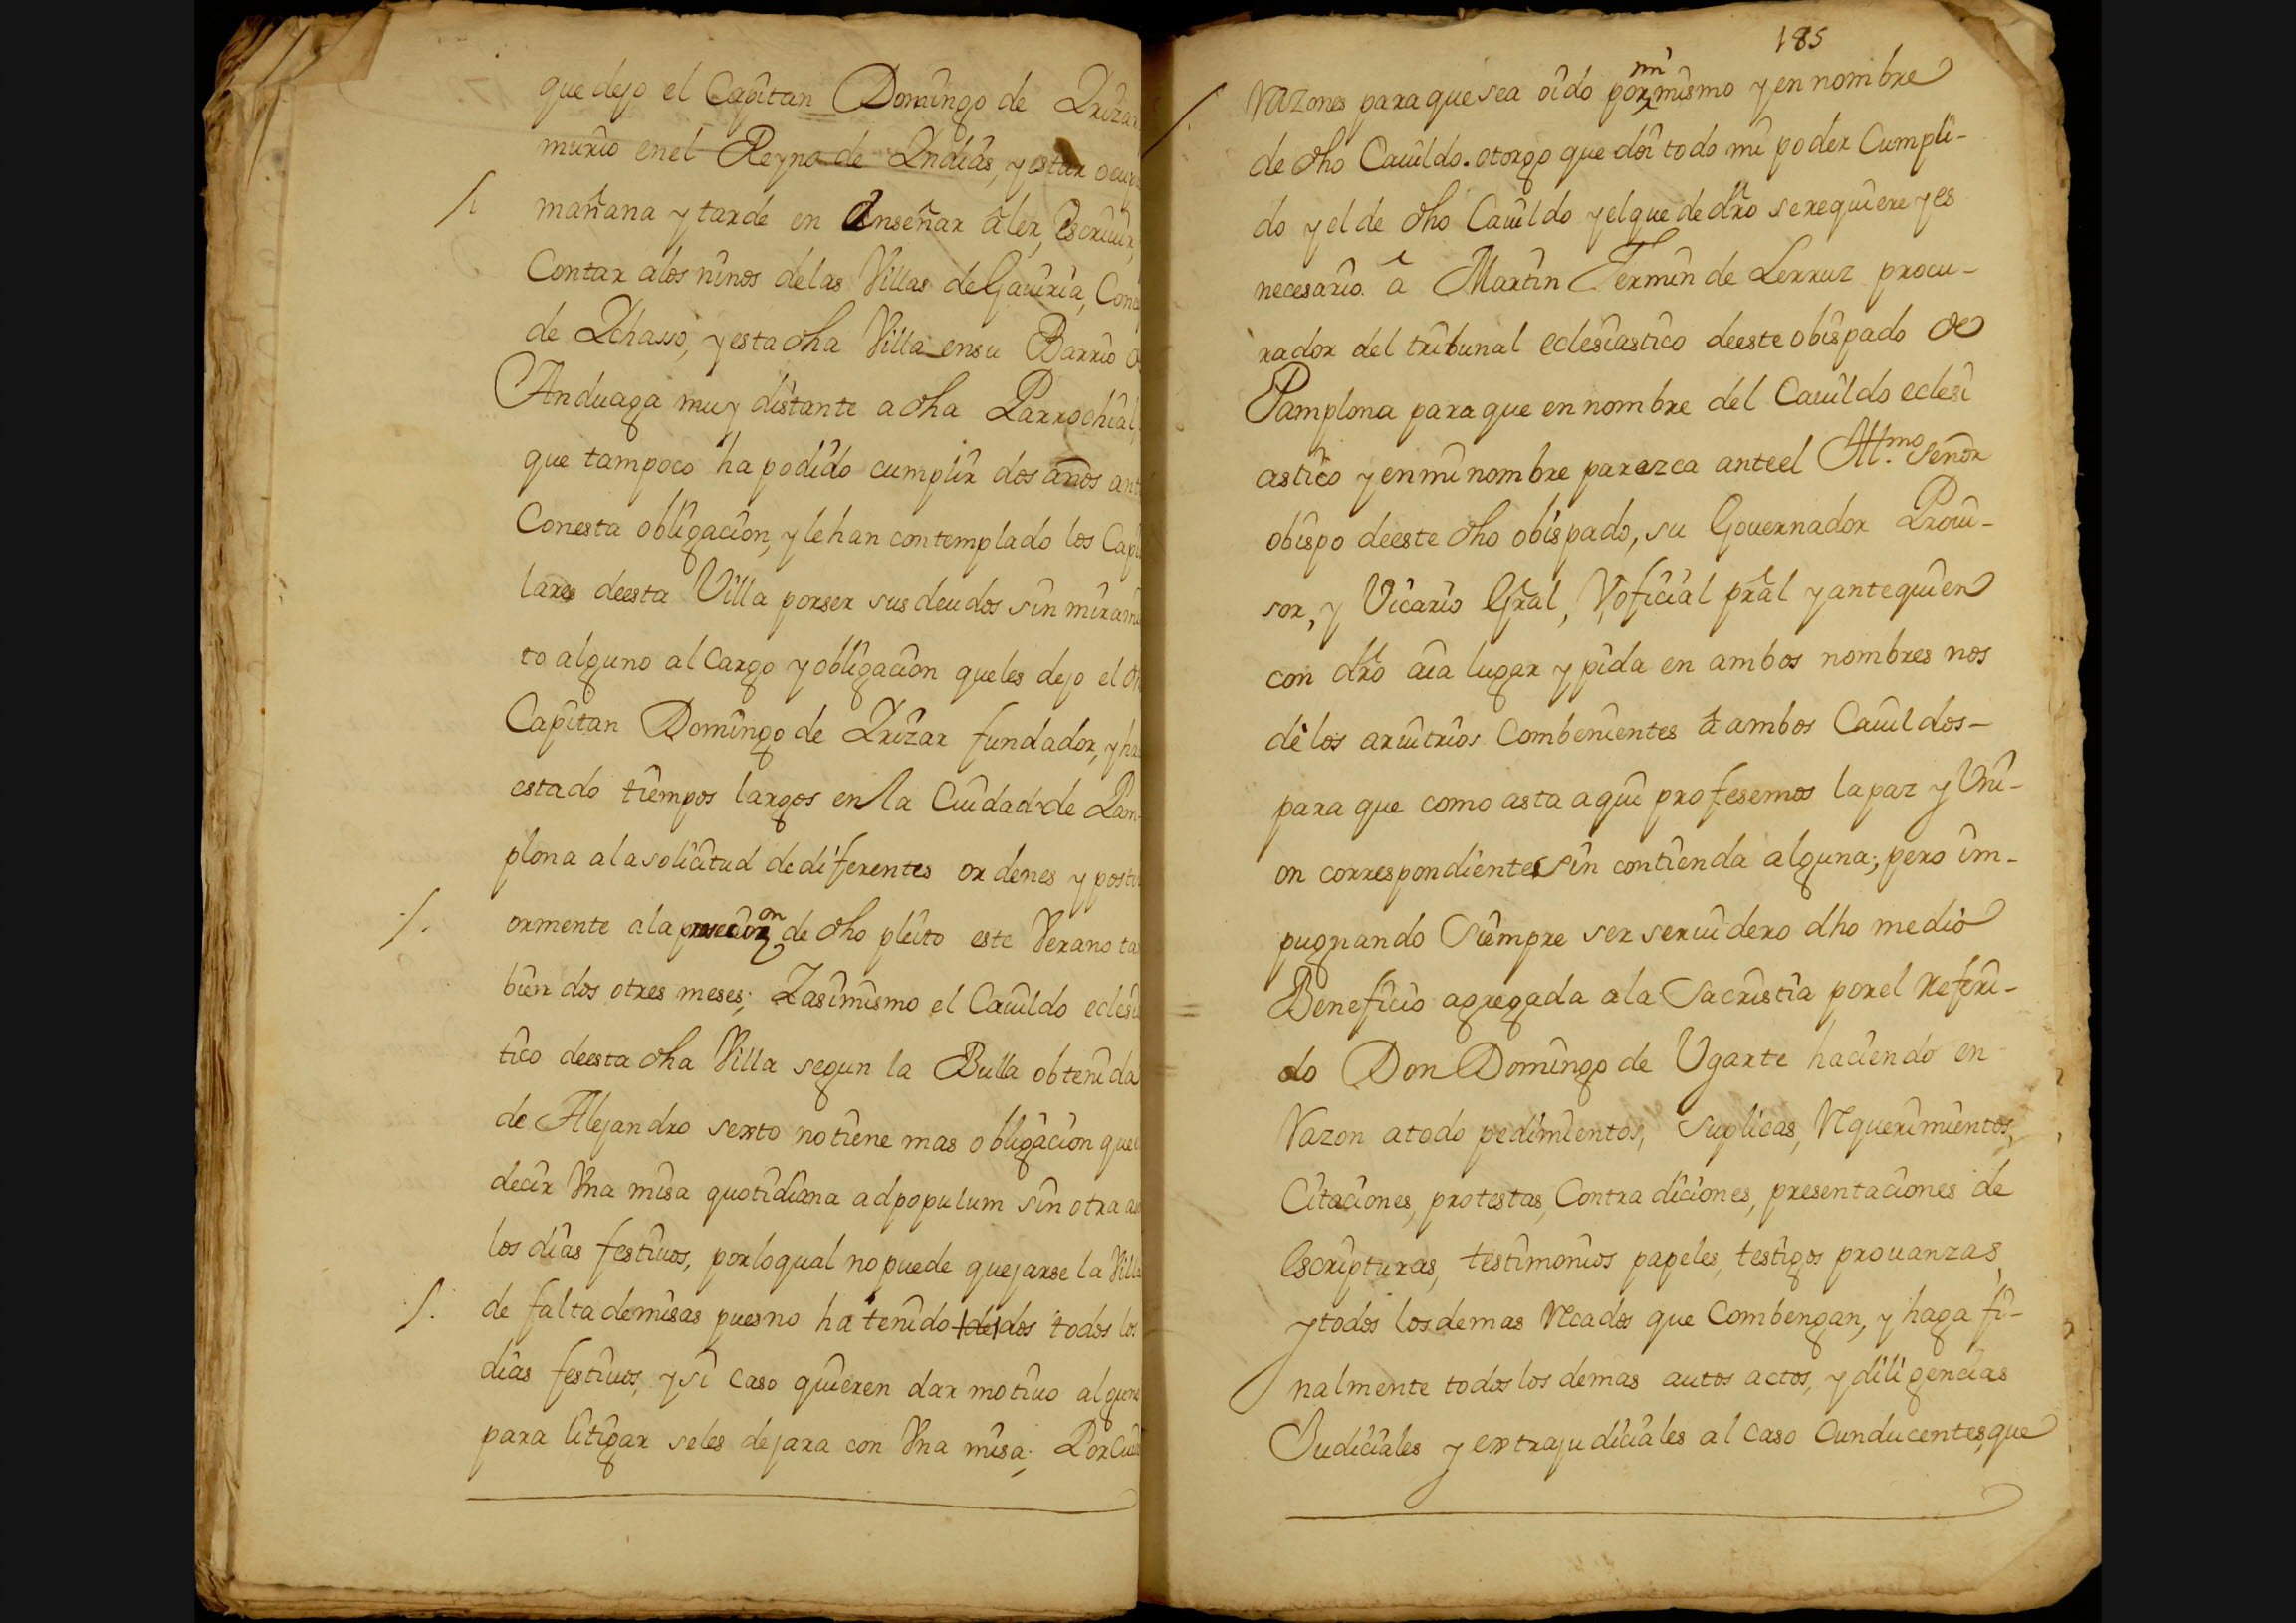 que dejo el Capitan Domingo de Yrizar
murio enel Reyno de Yndias, y estar ocup
mañana y tarde en enseñar â ler, escriuir,
Contar alos ninos delas Villas de Gauiria, Conc
de Ychasso, y esta dha Villa ensu Barrio de
Anduaga muy distante a dha Parrochial,
que tampoco ha podido cumplir dos años ant
Conesta obligacion, y le han contemplado los Capi
lares deesta Villa porser sus deudos sin miram
to alguno al Cargo y obligacion queles dejo el dh
Capitan Domingo de Yrizar fundador, y ha
estado tiempos largos en la Ciudad de Pam-
plona ala solicitud de diferentes ordenes y poste
ormente ala de dho pleito este Verano ta
bien dos otres meses; Y asimismo el Cauildo eclesia
tico deesta dha Villa segun la Bulla obtenida
de Alejandro sexto no tiene mas obligacion que
decir Vna misa quotidiana ad populum sin otra a
los dias festiuos, porloqual no puede quejarse la Villa
de falta demisas pues no ha tenido dos todos los
dias festiuos, y si caso quieren dar motiuo alguno
para litigar seles dejara con Vna misa; Por Cuia
185
razones para que sea oido por mi mismo y en nombre
de dho Cauildo. otorgo que doi todo mi poder Cumpli-
do y el de dho Cauildo y el que de dro serequiere y es
necesario. â Martin Fermin de Lerruz procu-
rador del tribunal eclesiastico deeste obispado de
Pamplona para que en nombre del Cauildo eclesi
astico y enmi nombre parezca anteel Ill.mo Señor
obispo deeste dho obispado, su Gouernador Proui-
sor, y Vicario Gral, V oficial pral y ante quien
con dro aia lugar y pida en ambos nombres nos
dè los aruitrios Combenientes â ambos Cauildos-
para que como asta aqui profesemos la paz y Vni-
on correspondiente sin contienda alguna; pero im-
pugnando siempre ser seruidero dho medio
Beneficio agregada ala Sacristia porel referi-
do Don Domingo de Ugarte haciendo en
razon atodo pedimientos, suplicas, requerimientos,
Citaciones, protestas, Contradiciones, presentaciones de
escripturas, testimonios papeles, testigos prouanzas,
y todos losdemas recados que Combengan, y haga fi-
nalmente todos los demas autos actos, y diligencias
Judiciales y extrajudiciales al caso Cunducentes, que